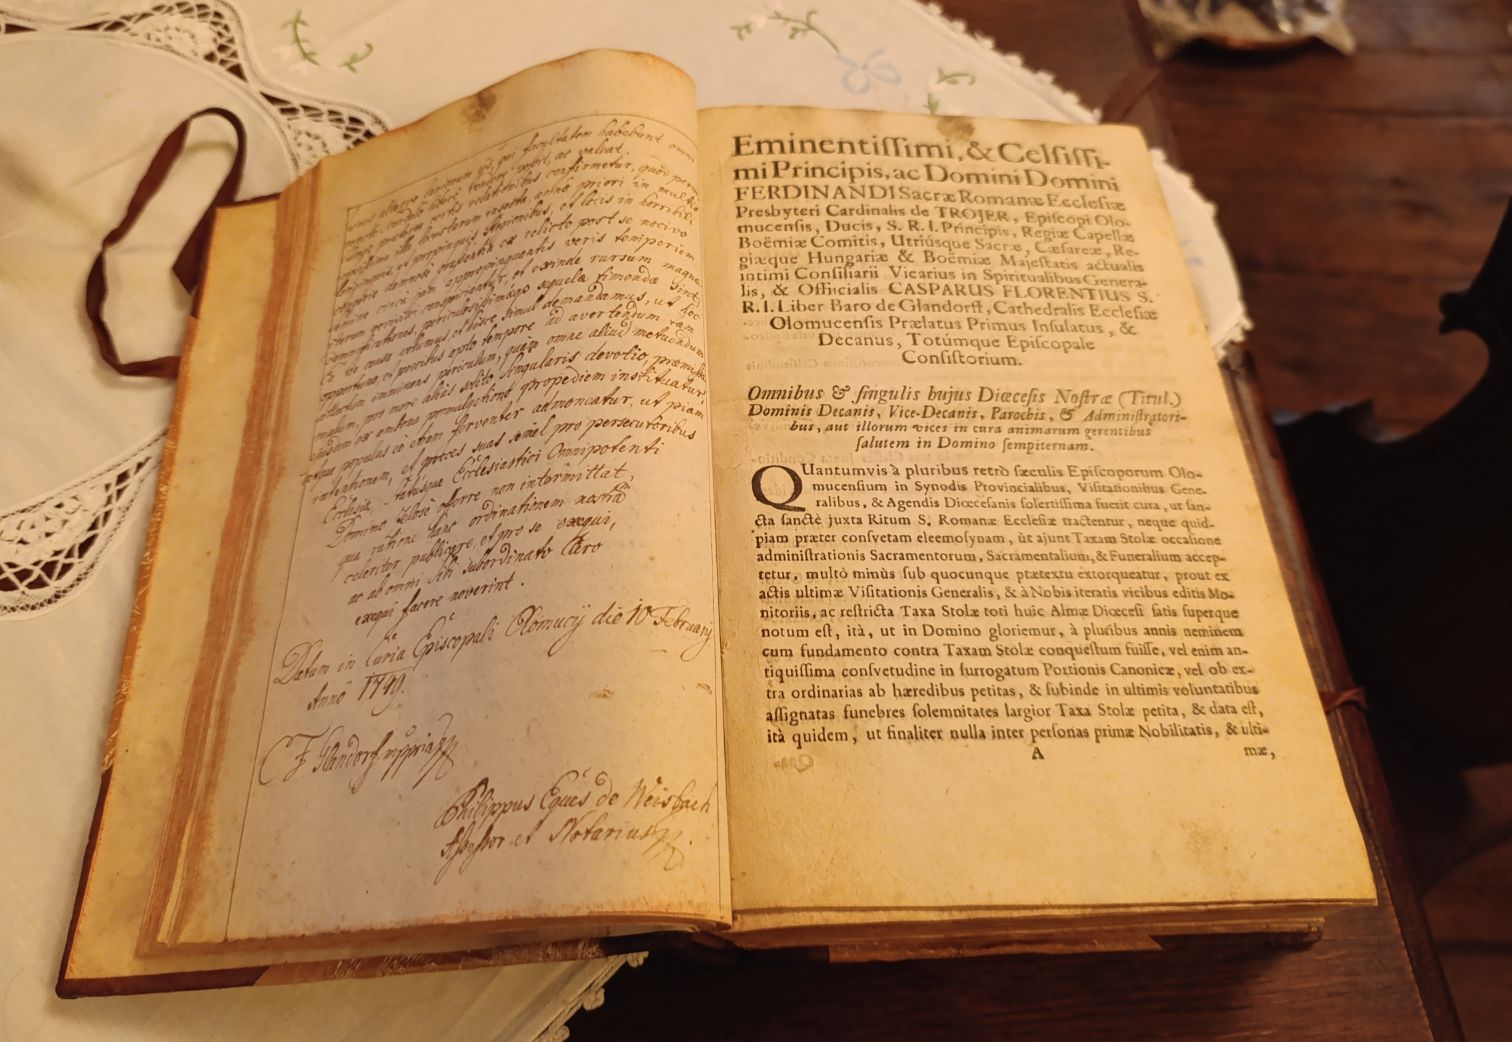 facultatem habebunt omni
confirmetur, quod
anno priori in multis
et locis in horribili
ex relicto post se nocivo
appropinquantis veris temperiem
et exinde rursum magna
sequela timenda sint,
volumus, et hisce simul demandamus, ut hoc
opportuno, et precibus apto tempore ad avertendum tam
imminens periculum, quam omne aliud metuendum
malum, pro more alias solito singularis devotio, praemissa
ejusdem ex ambona promulgatione propediem instituatur,
populus eo etiam ferventer admoneatur, ut piam
intentionem, et preces suas simul pro persecutoribus
Ecclesiae, Statusque Ecclesiastici Omnipotenti
Domino zelose offerre non intermittat,
qua ratione hanc ordinationem nostram
celeriter publicare, et pro se exequi,
ac ab omni sibi subordinato Clero
exequi facere noverint.
Datum in Curia Episcopali Olomucij die 10 February
Anno 1749.
C F Glandorf mppria
Philippus Eques de Weisbach
Assessor et Notarius
Eminentiſſimi, & Celſiſſi-
mi Principis, ac Domini Domini
FERDINANDI Sacræ Romanæ Eccleſiæ
Presbyteri Cardinalis de TROJER, Epiſcopi Olo-
mucenſis, Ducis, S. R. I. Principis, Regiæ Capellæ
Boëmiæ Comitis, Utriúsque Sacræ, Cæſareæ, Re-
giæque Hungariæ & Boëmiæ Majeſtatis actualis
intimi Conſiliarii Vicarius in Spiritualibus Genera-
lis, & Officialis CASPARUS FLORENTIUS S.
R. I. Liber Baro de Glandorff, Cathedralis Eccleſiæ
Olomucenſis Prælatus Primus Inſulatus, &
Decanus, Totúmque Epiſcopale
Conſiſtorium.
Omnibus & ſingulis hujus Diœceſis Noſtræ (Titul.)
Dominis Decanis, Vice-Decanis, Parochis, & Adminiſtratori-
bus, aut illorum vices in cura animarum gerentibus
ſalutem in Domino ſempiternam.
QUantumvis à pluribus retrò ſæculis Epiſcoporum Olo-
mucenſium in Synodis Provincialibus, Viſitationibus Gene-
ralibus, & Agendis Diœceſanis ſolertiſſima fuerit cura, ut san-
cta ſanctè juxta Ritum S. Romanæ Eccleſiæ tractentur, neque quid-
piam præter conſvetam eleemoſynam, ùt ajunt Taxam Stolæ occaſione
adminiſtrationis Sacramentorum, Sacramentalium, & Funeralium accep-
tetur, multò minùs ſub quocunque prætextu extorqueatur, prout ex
actis ultimæ Viſitationis Generalis, & à Nobis iteratis vicibus editis Mo-
nitoriis, ac reſtricta Taxa Stolæ toti huic Almæ Diœceſi ſatis ſuperque
notum eſt, ità, ut in Domino gloriemur, à pluribus annis neminem
cum fundamento contra Taxam Stolæ conqueſtum fuiſſe, vel enim an-
tiquiſſima conſvetudine in ſurrogatum Portionis Canonicæ, vel ob ex-
tra ordinarias ab hæredibus petitas, & ſubinde in ultimis voluntatibus
aſſignatas funebres ſolemnitates largior Taxa Stolæ petita, & data eſt,
ità quidem, ut finaliter nulla inter perſonas primæ Nobilitatis, & ulti-
A mæ,